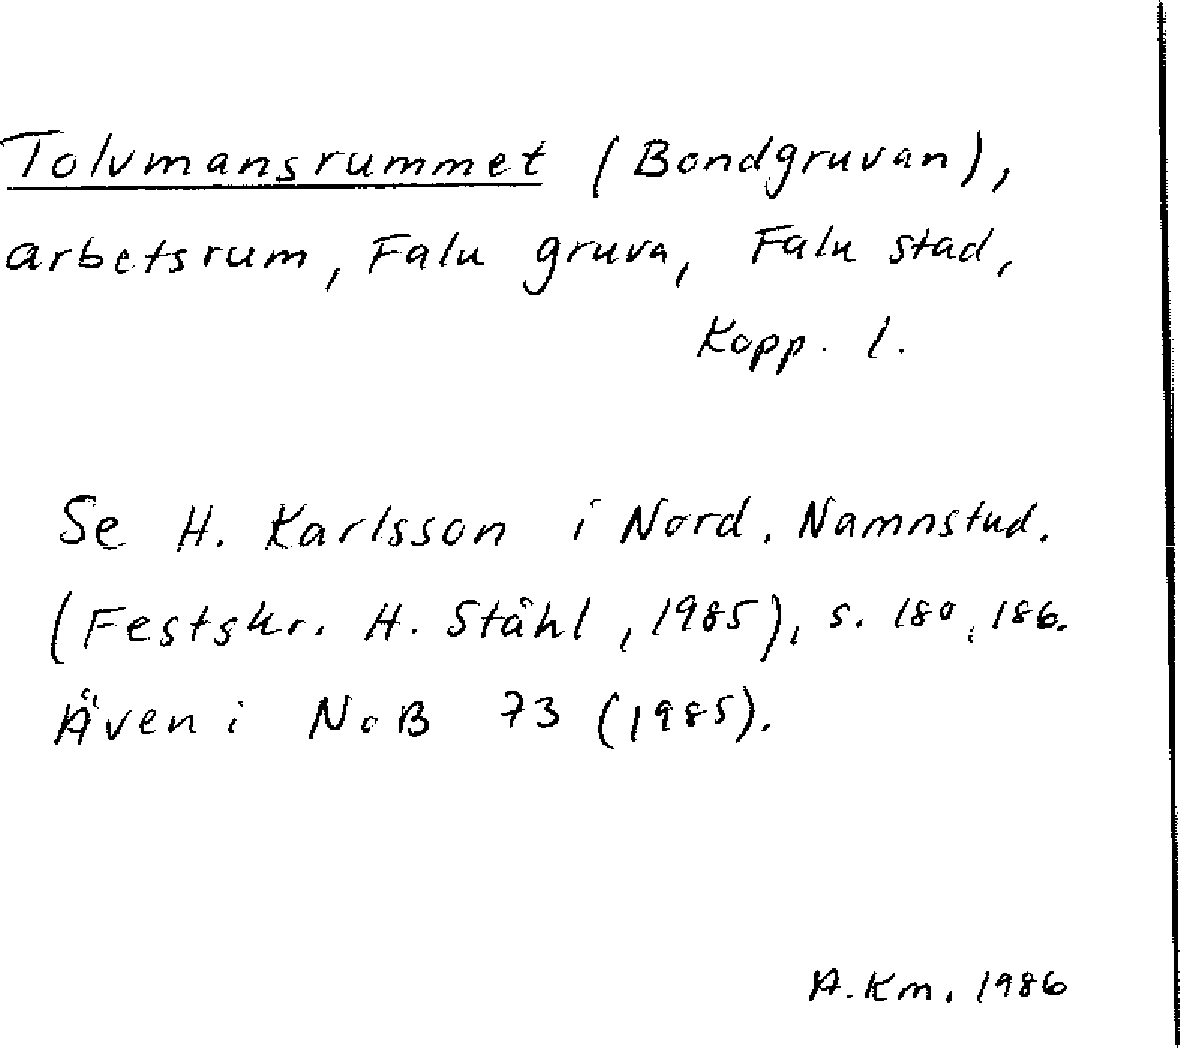 Tolvmansrummet (Bondgruvan),
arbetsrum, Falu gruva, Falu stad,
Kopp. l.
Se H. Karlsson i Nord. Namnstud.
(Festskr. H. Ståhl, 1985), s. 180, 186.
Även i NoB 73 (1985).
A. Km. 1986